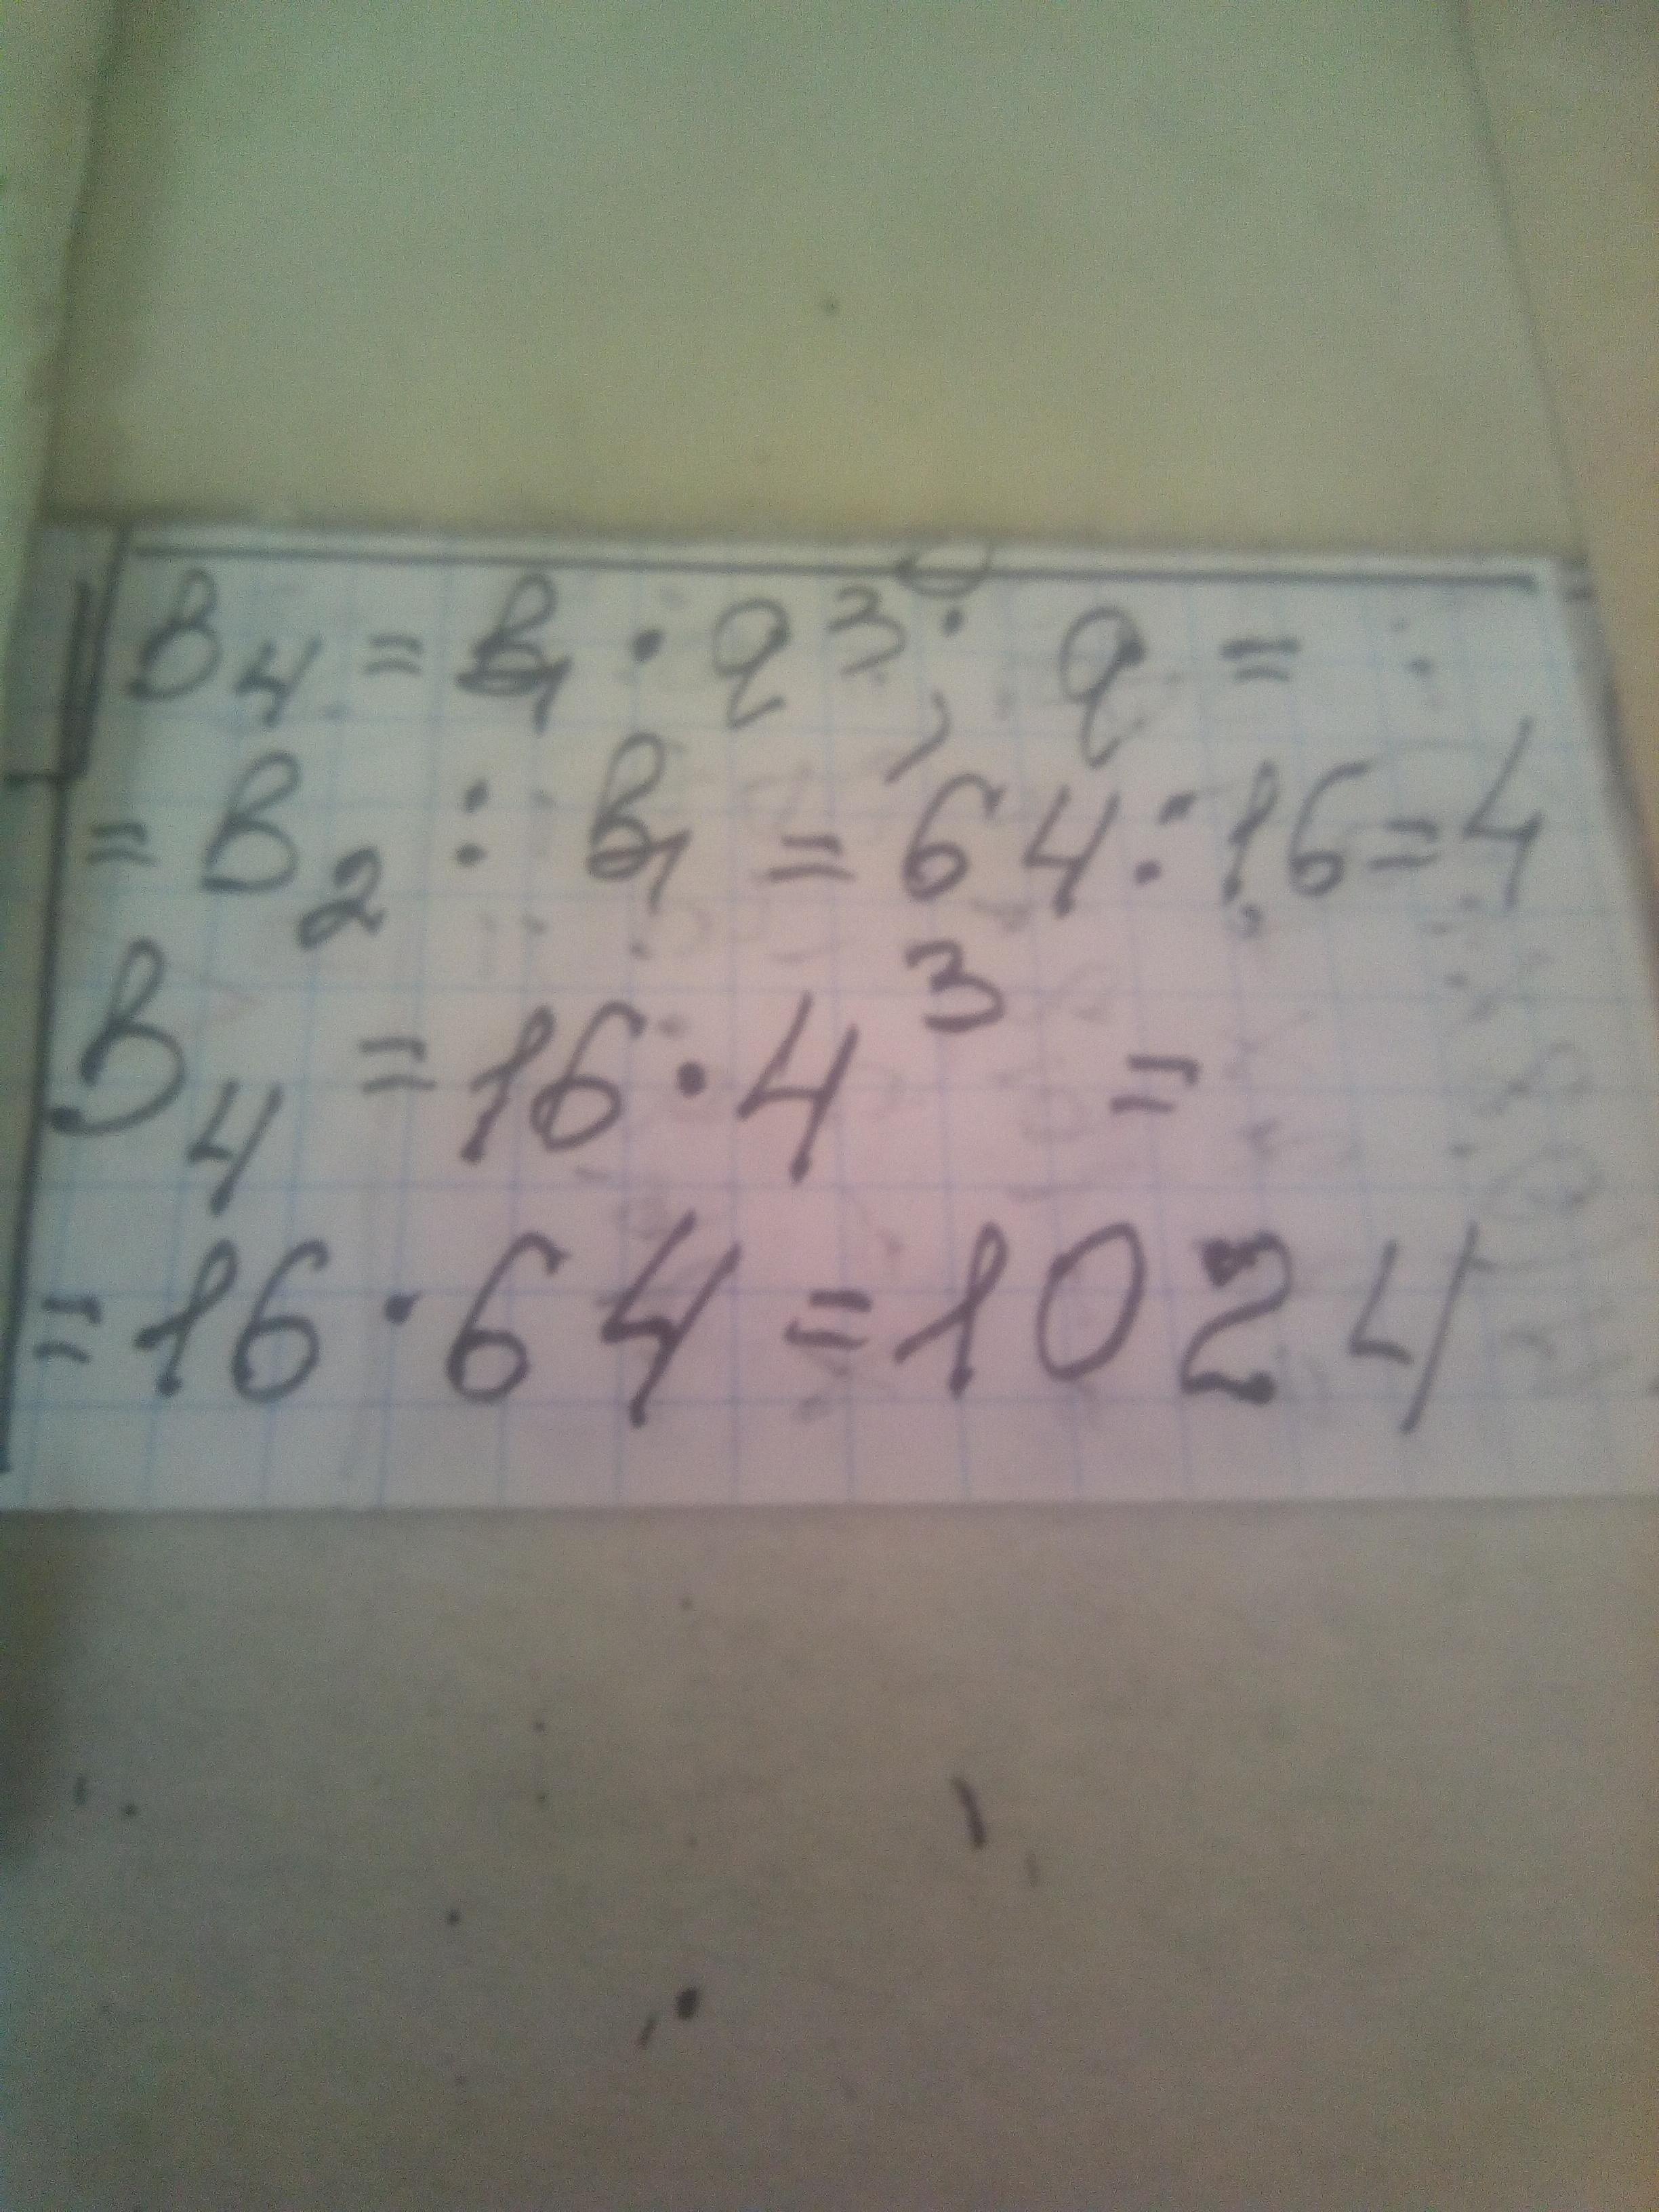 в₄ = в₁ · q³; q =
= в₂ : в₁ = 64 : 16 = 4
в₄ = 16 · 4³ =
= 16 · 64 = 1024